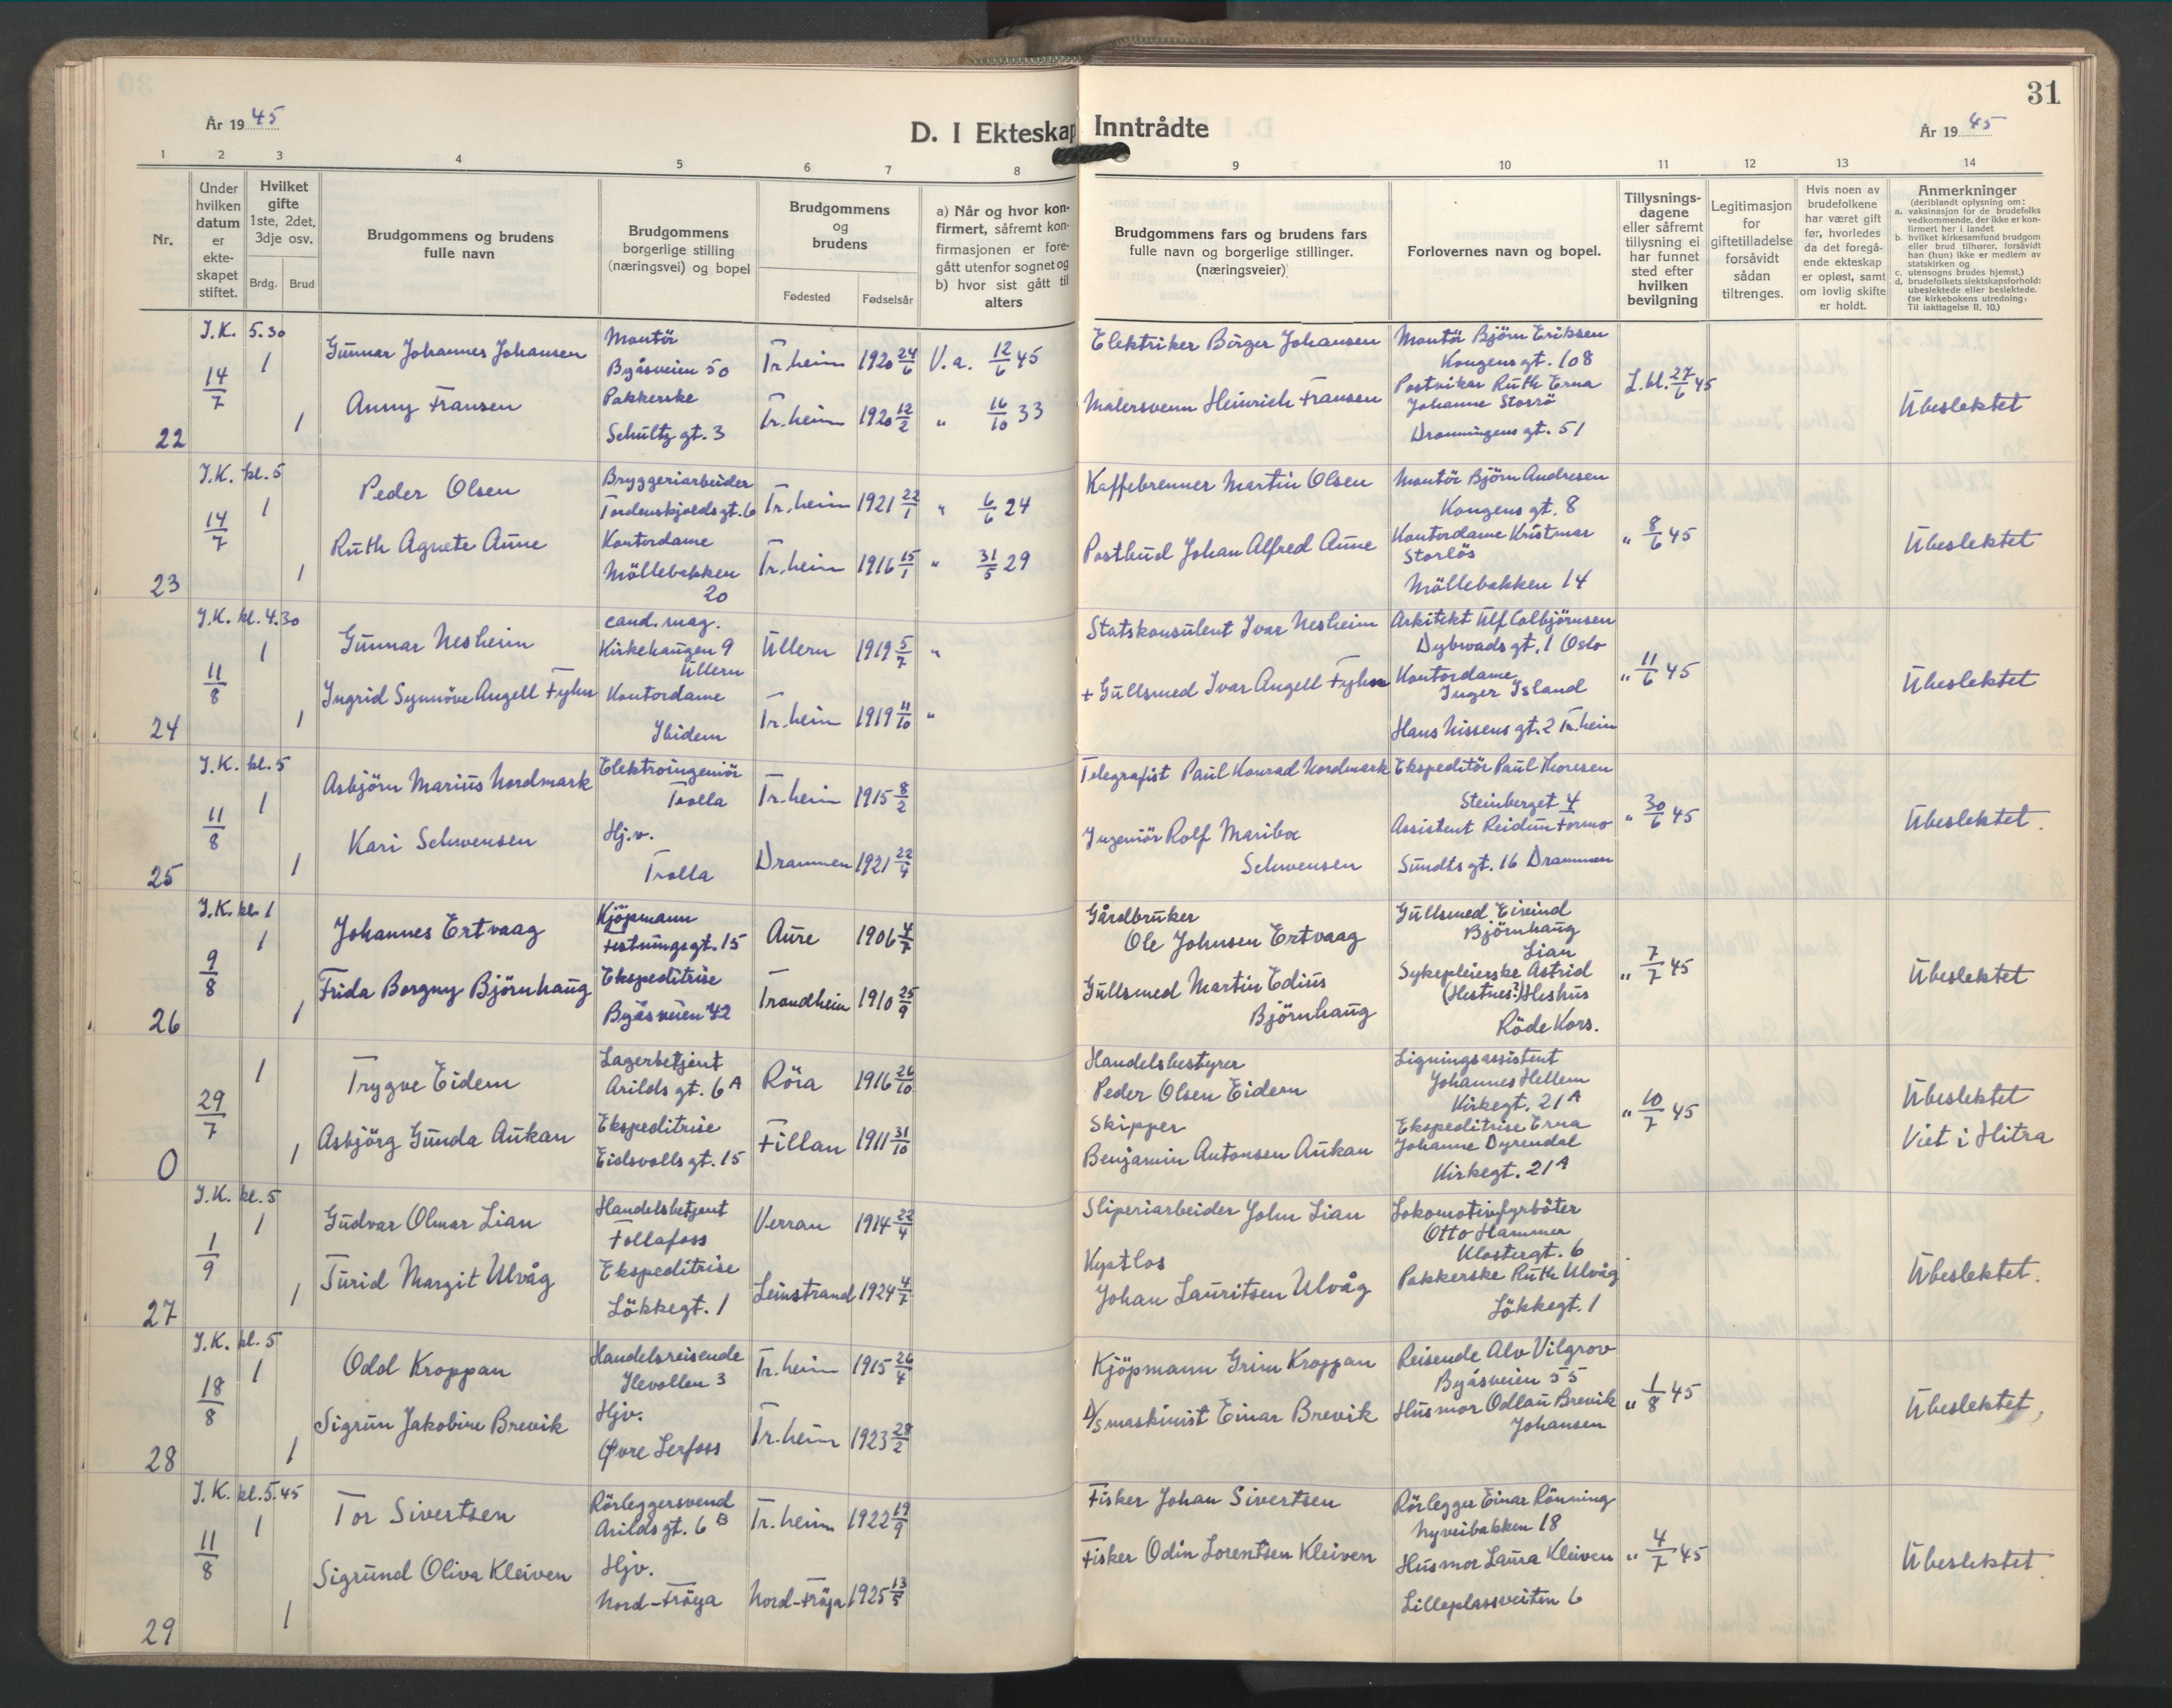 31
År 1945
D. I Ekteskap Inntrådte
År 1945
1 2 3 4 5 6 7 8 9 10 11 12 13 14
Nr.
Under hvilken datum er ekteskapet stiftet.
Hvilket gifte 1ste, 2det, 3dje osv.
Brdg. Brud
Brudgommens og brudens fulle navn
Brudgommens borgerlige stilling (næringsvei) og bopel
Brudgommens og brudens
Fødested Fødselsår
a) Når og hvor konfirmert, såfremt konfirmasjonen er foregått utenfor sognet og
b) hvor sist gått til alters
Brudgommens fars og brudens fars fulle navn og borgerlige stillinger. (næringsveier)
Forlovernes navn og bopel.
Tillysningsdagene eller såfremt tillysning ei har funnet sted efter hvilken bevilgning
Legitimasjon for giftetilladelse forsåvidt sådan tiltrenges.
Hvis noen av brudefolkene har været gift før, hvorledes da det foregående ekteskap er opløst, samt om lovlig skifte er holdt.
Anmerkninger
(deriblandt oplysning om:
a. vaksinasjon for de brudefolks vedkommende, der ikke er konfirmert her i landet
b. hvilket kirkesamfund brudgom eller brud tilhører, forsåvidt han (hun) ikke er medlem av statskirken og
c. utensogns brudes hjemst.)
d. brudefolkets slektskapsforhold: ubeslektede eller beslektede.
(se kirkebokens utredning: Til iakttagelse II, 10.)
I.K. 5.30
22 14/7 1 Gunnar Johannes Johansen
Montör
Byåsveien 50
Tr.heim 1920 24/6 V.a. 12/6 45
Elektriker Birger Johansen
Montör Björn Eriksen
Kongensgt. 108
1 Anny Fransen
Pakkerske
Schultz gt. 3
Tr.heim 1920 12/2 " 16/10 33
Malersvenn Heinrich Fransen
Postvikar Ruth Erna
Johanne Storrö
Dronningens gt. 51
L.bl. 27/6 45
Ubeslektet
I.K. kl. 5
23 14/7 1 Peder Olsen
Bryggeriarbeider
Tordenskjoldsgt. 6
Tr.heim 1921 22/1 " 6/6 24
Kaffebrenner Martin Olsen
Montör Björn Andresen
Kongensgt. 8
1 Ruth Agnete Aune
Kontordame
Möllebakken
20
Tr.heim 1916 15/1 " 31/5 29
Postbud Johan Alfred Aune
Kontordame Kristmar
Storlös
Möllebakken 14
" 8/6 45
Ubeslektet
I.K. kl. 4.30
24 11/8 1 Gunnar Nesheim
cand. mag.
Kirkehaugen 9
Ullern
Ullern 1919 5/7 "
Statskonsulent Ivar Nesheim
Arkitekt Ulf Colbjörnsen
Dybwadsgt. 1 Oslo
1 Ingrid Synnöve Angell Fyhn
Kontordame
Ibidem
Tr.heim 1919 11/10 "
+ Gullsmed Ivar Angell Fyhn
Kontordame
Inger Island
Hans Nissens gt. 2 Tr.heim
" 11/6 45
Ubeslektet
I.K. kl. 5
25 11/8 1 Asbjörn Marius Nordmark
Elektroingeniör
Trolla
Tr.heim 1915 8/2
Telegrafist Paul Konrad Nordmark
Ekspeditör Paul Thoresen
Steinberget 4
1 Kari Schwensen
Hj.v.
Trolla
Drammen 1921 22/4
Ingeniör Rolf Maribo
Schwensen
Assistent Reidun Formo
Sundts gt. 16 Drammen
" 30/6 45
Ubeslektet.
I.K. kl. 1
26 9/8 1 Johannes Ertvaag
Kjöpmann
Festningsgt. 15
Aure 1906 4/7
Gårdbruker
Ole Johnsen Ertvaag
Gullsmed Eivind
Björnhaug
Lian
1 Frida Borgny Björnhaug
Ekspeditrise
Byåsveien 42
Trondheim 1910 25/9
Gullsmed Martin Edius
Björnhaug
Sykepleierske Astrid
(Hestnes?) Heshus
Röde Kors.
" 7/7 45
Ubeslektet
0 29/7 1 Trygve Eidem
Lagerbetjent
Arilds gt. 6 A
Röra 1916 26/10
Handelsbestyrer
Peder Olsen Eidem
Ligningsassistent
Johannes Hellem
Kirkegt. 21 A
1 Asbjörg Gunda Aukan
Ekspeditrise
Eidsvollsgt. 15
Fillan 1911 31/10
Skipper
Benjamin Antonsen Aukan
Ekspeditrise Erna
Johanne Dyrendal
Kirkegt. 21 A
" 10/7 45
Ubeslektet
Viet i Hitra
I.K. kl. 5
27 1/9 1 Gudvar Olmar Lian
Handelsbetjent
Follafoss
Verran 1914 22/4
Sliperiarbeider John Lian
Lokomotivfyrböter
Otto Hammer
Klostergt. 6
1 Turid Margit Ulvåg
Ekspeditrise
Lökkegt. 1
Leinstrand 1924 4/7
Johan Lauritsen Ulvåg
Pakkerske Ruth Ulvåg
Lökkegt. 1
Ubeslektet.
I.K. kl. 5
28 18/8 1 Odd Kroppan
Handelsreisende
Ilevollen 3
Tr.heim 1915 26/4
Kjöpmann Grim Kroppan
Reisende Alv Vilgrov
Byåsveien 55
1 Sigrun Jakobine Brevik
Hjv.
Øvre Lerfoss
Tr.heim 1923 28/2
D/S maskinist Einar Brevik
Husmor Odlau Brevik
Johansen
" 1/8 45
Ubeslektet,
I.K. kl. 5.45
29 11/8 1 Tor Sivertsen
Rörleggersvend
Arildsgt. 6 B
Tr.heim 1922 19/9
Fisker Johan Sivertsen
Rörlegger Einar Rönning
Nyveibakken 18
1 Sigrund Oliva Kleiven
Hjv.
Nord-Fröya
Nord-Fröya 1925 13/5
Fisker Odin Lorentsen Kleiven
Husmor Laura Kleiven
Lilleplassveiten 6
" 4/7 45
Ubeslektet